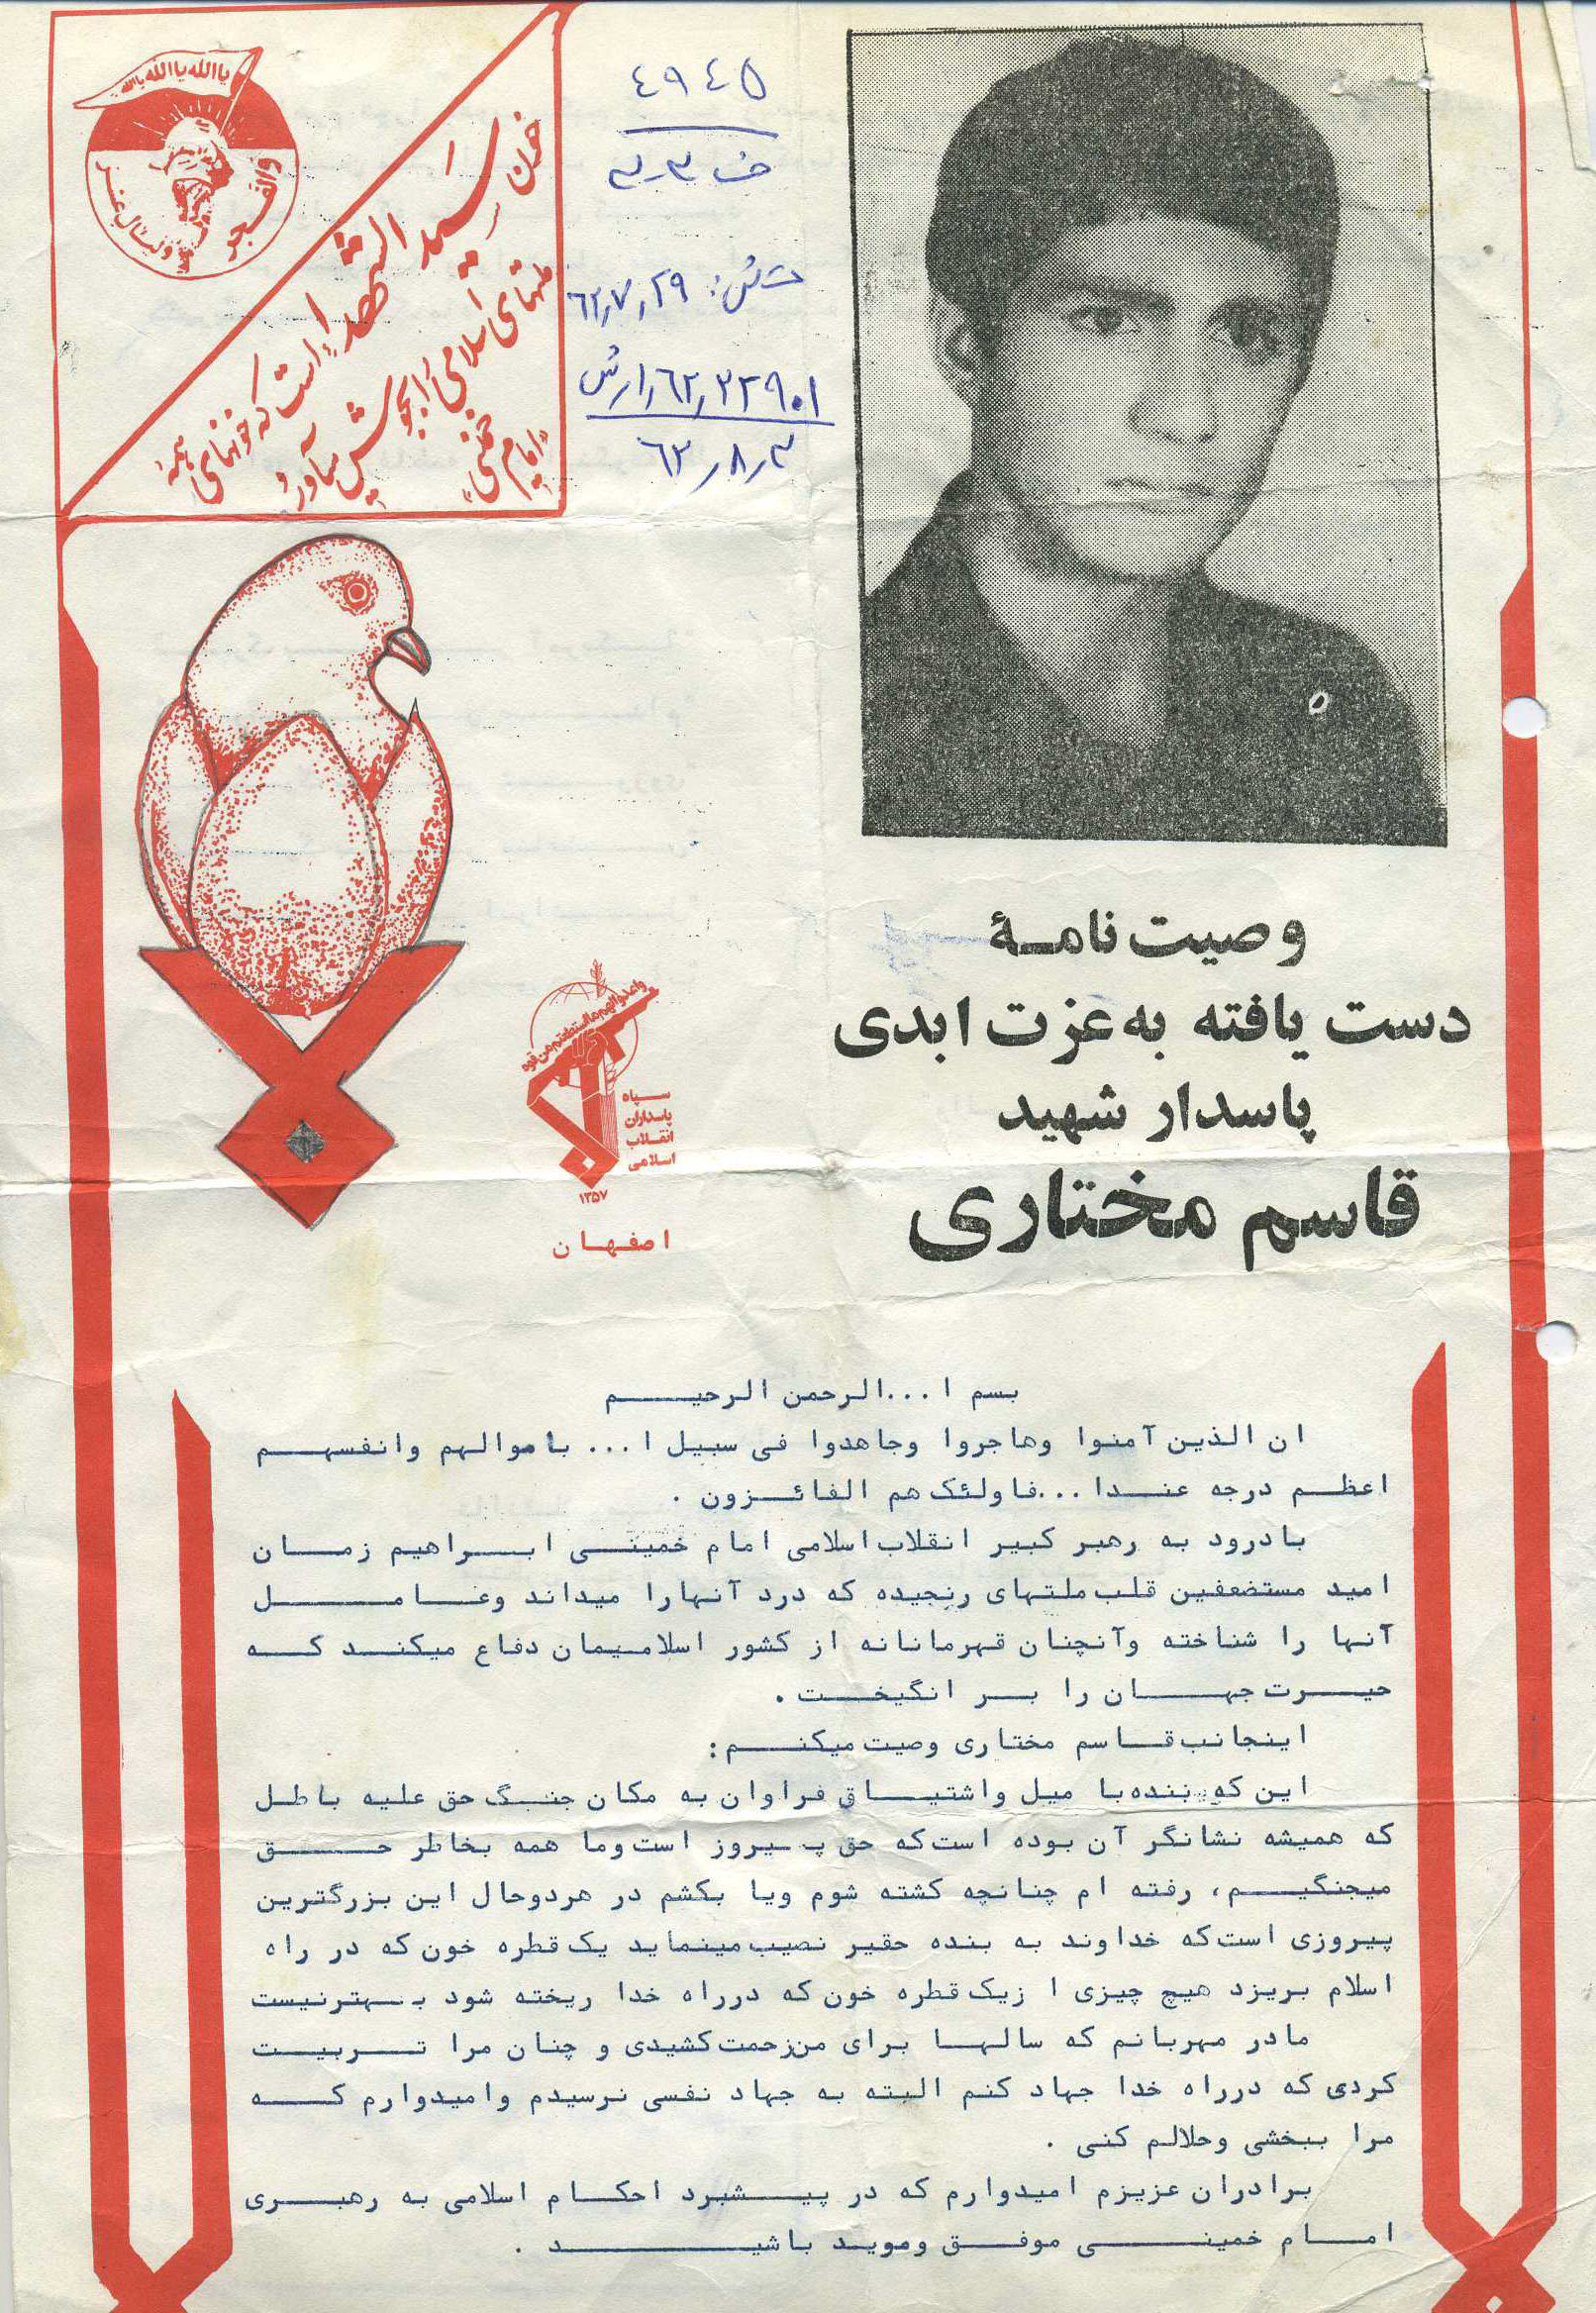 یا الله یا الله یا الله
والفجر
ولیال عشر
خون سید الشهداء است که خونهای همهٔ
ملتهای اسلامی را بجوش میآورد
"امام خمینی"
٤٩٤٥
ف ٣-٣
ت ش: ٦٢,٧,٢٩
٦٢,٨,٣
وصیت نامـهٔ
دست یافته به عزت ابدی
پاسدار شهید
قاسم مختاری
واعدوا لهم ما استطعتم من قوه
سپاه
پاسداران
انقلاب
اسلامی
۱۳۵۷
اصفهان
بسم ا...الرحمن الرحیم
ان الذین آمنوا وهاجروا وجاهدوا فی سبیل ا... باموالهم وانفسهم
اعظم درجه عندا...فاولئک هم الفائزون .
بادرود به رهبر کبیر انقلاب اسلامی امام خمینی ابراهیم زمان
امید مستضعفین قلب ملتهای رنجیده که درد آنهارا میداند وعامل
آنها را شناخته وآنچنان قهرمانانه از کشور اسلامیمان دفاع میکند که
حیرت جهان را بر انگیخت .
اینجانب قاسم مختاری وصیت میکنم :
این که بنده با میل واشتیاق فراوان به مکان جنگ حق علیه باطل
که همیشه نشانگر آن بوده است که حق پیروز است وما همه بخاطر حق
میجنگیم، رفته ام چنانچه کشته شوم ویا بکشم در هردوحال این بزرگترین
پیروزی است که خداوند به بنده حقیر نصیب مینماید یک قطره خون که در راه
اسلام بریزد هیچ چیزی ا زیک قطره خون که درراه خدا ریخته شود بهترنیست
مادر مهربانم که سالها برای من زحمت کشیدی و چنان مرا تربیت
کردی که درراه خدا جهاد کنم البته به جهاد نفسی نرسیدم وامیدوارم که
مرا ببخشی وحلالم کنی .
برادران عزیزم امیدوارم که در پیشبرد احکام اسلامی به رهبری
امام خمینی موفق وموید باشید .